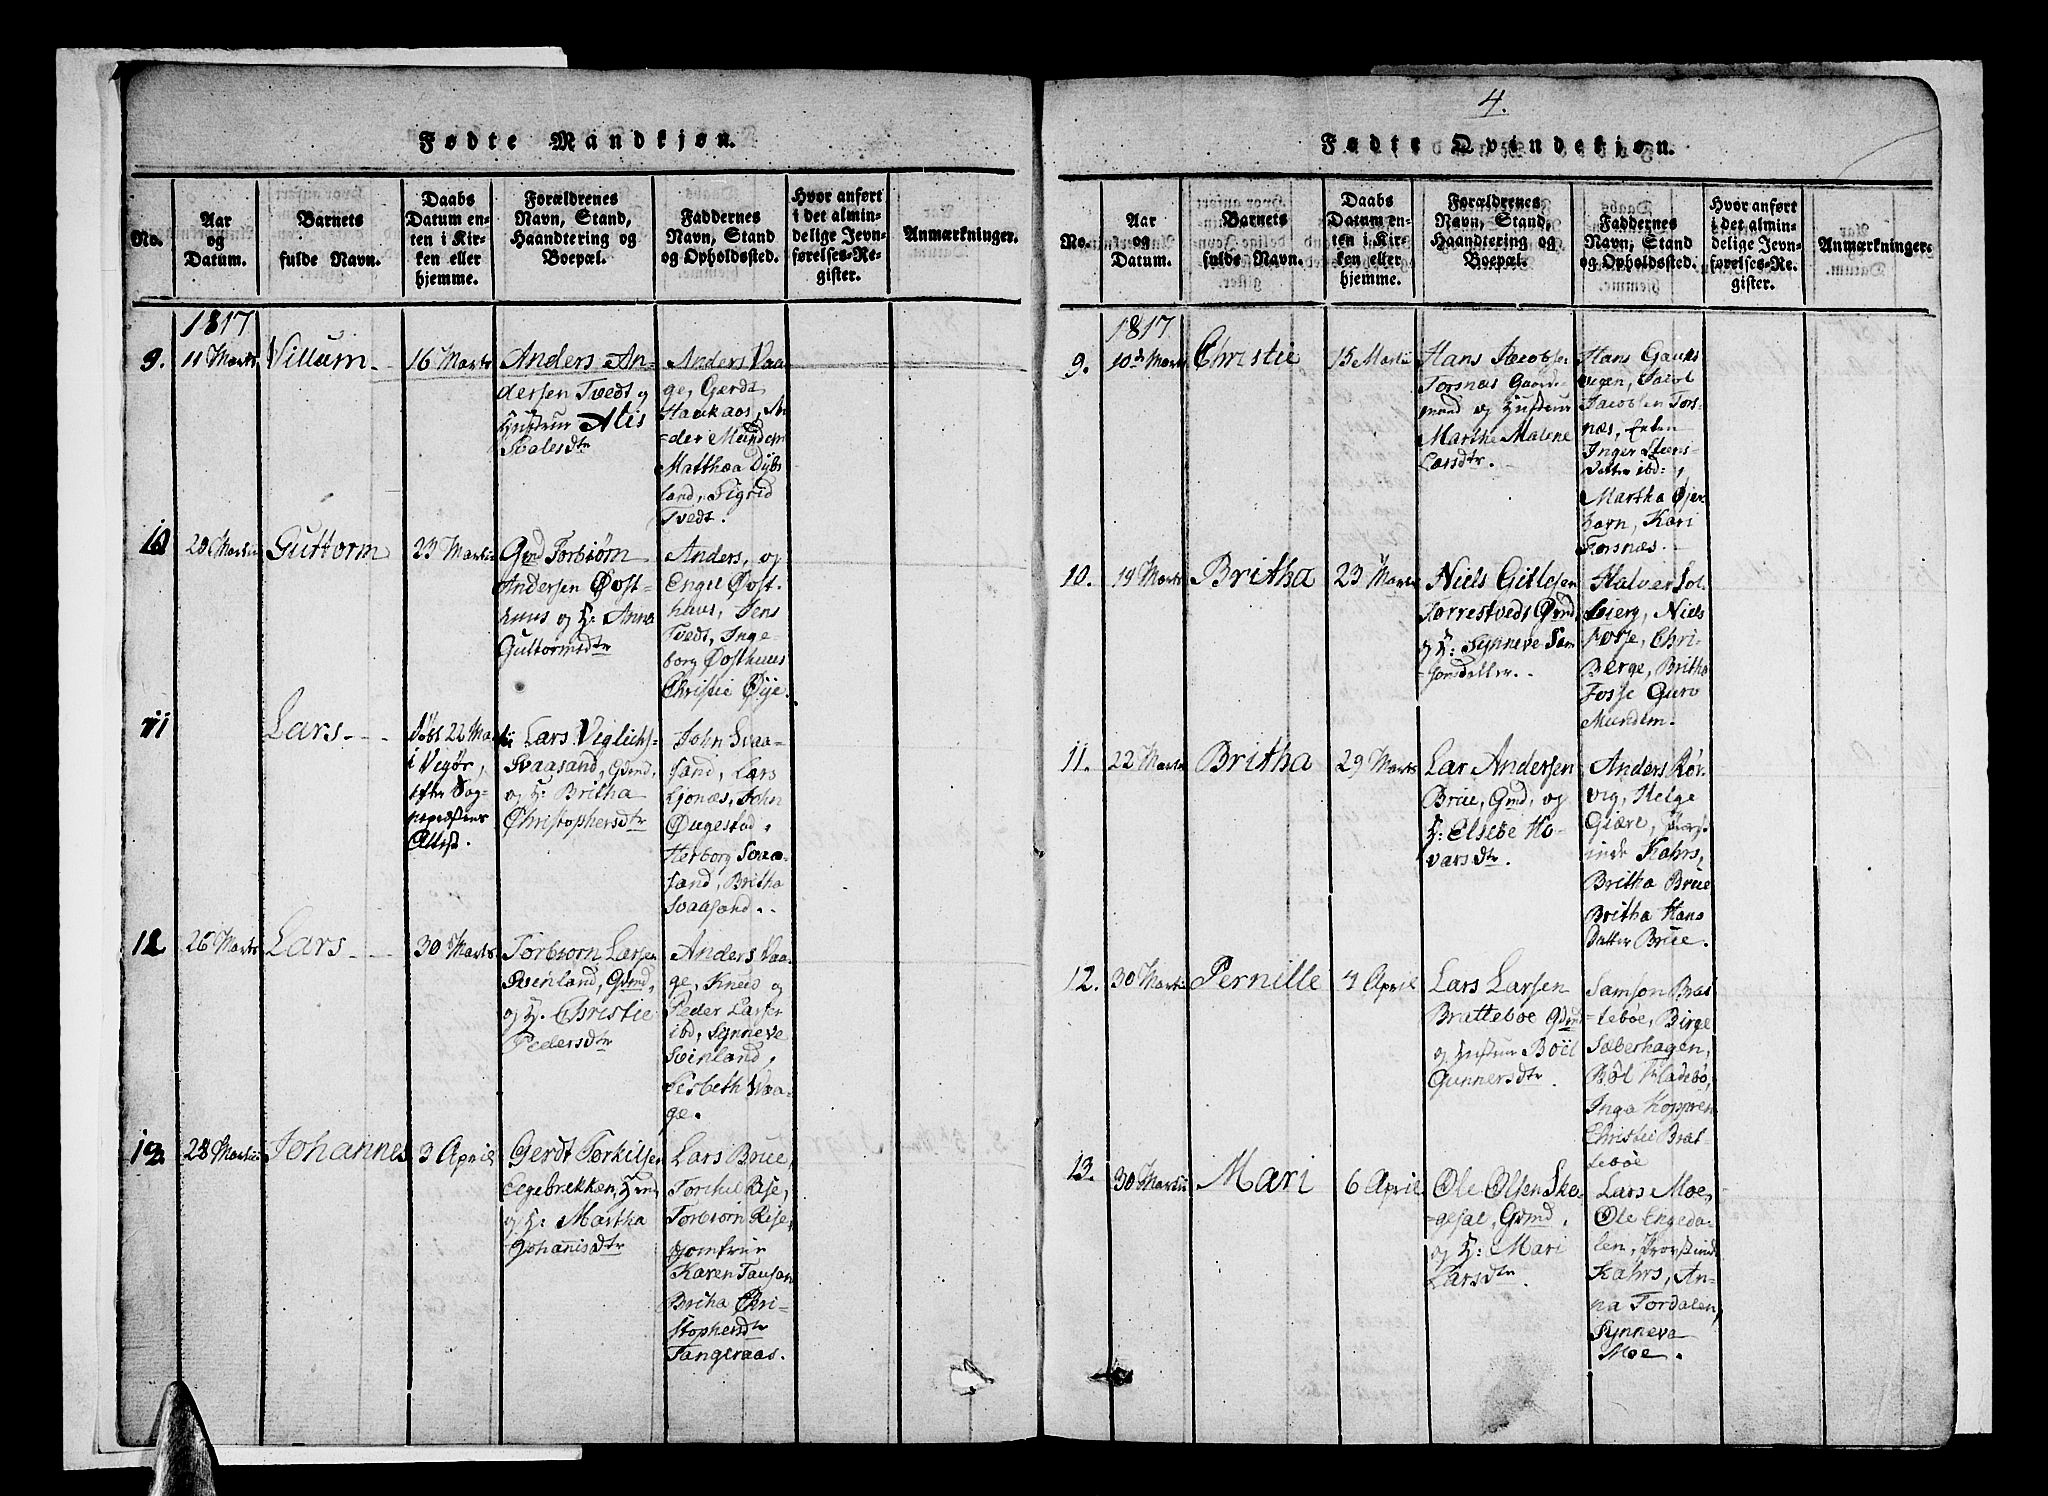 Fødte Mandkjøn.
No.
Aar
og
Datum.
Barnets
fulde Navn.
Daabs
Datum en-
ten i Kir-
ken eller
hjemme.
Forældrenes
Navn, Stand,
Haandtering og
Boepæl.
Faddernes
Navn, Stand
og Opholdssted.
Hvor anført
i det almin-
delige Jevn-
førelses-Re-
gister.
Anmærkninger.
1817
9.
11 Marts
Villum
16 Marts
Anders An-
dersen Tvedt og
Hustrue
Svalesdtr
Anders Vaa-
ge, Gerdt
Haukaas, An
=der Mundem
Matthæa Dybs
land, Sigrid
Tvedt.
10
20 Martii
Guttorm
23 Martii
Gmd Torbiørn
Andersen Øost-
huus og H: Anna
Guttormsdtr
Anders, og
Engel Øost-
huus, Jens
Tvedt, Inge-
borg Øosthuus
Christie Øye.
11
Lars
Døbt 22 Mar-
tii
i Vigør,
efter Sog-
nepræstens
Attest.
Lars Viglichs-
Svaasand, Gdmd,
og H: Britha
Christophersdtr
John Svaa-
sand, Lars
Ljonæs, John
Øugestad,
Herborg Svaa-
sand, Britha
Svaasand.
12
26 Marts
Lars
30 Marts
Torbiørn Larsen
Svinland, Gdmd,
og H. Christie
Pedersdtr
Anders Vaa-
ge, Knud og
Peder Larsen
ibd, Synneve
Svinland,
Lisbeth Vaa-
ge.
13.
28 Martii
Johannes
3 April
Gerdt Torkilsen
Egebrekken,
og H: Martha
Johannisdtr
Lars Brue,
Torchil Rise,
Torbiørn Rise,
Jomfrue
Karen Tausan
Britha Chri-
stophersdtr
Tangeraas.
4.
Fødte Qvindekjøn.
No.
Aar
og
Datum.
Barnets
fulde Navn.
Daabs
Datum en-
ten i Kir-
ken eller
hjemme.
Forældrenes
Navn, Stand,
Haandtering og
Boepæl.
Faddernes
Navn, Stand
og Opholdssted.
Hvor anført
i det almin-
delige Jevn-
førelses-Re-
gister.
Anmærkninger.
1817
9.
10de Marts
Christie
15 Martii
Hans Jacobsen
Torsnæs Gaard-
mand og Hustrue
Marthe Malene
Larsdtr.
Hans Gauks
vigen, Jacob
Jacobsen Tors-
næs, Enken
Inger Steens-
datter ibd:,
Martha Øjer
havn, Kari
Torsnæs.
10.
19 Marts
Britha
23 Marts
Niels Gitlesen
Torrestvedt Gmd,
og H: Synneve Sam
=sonsdatter.
Halver Sol-
bierg, Niels
Fosse, Chri-
Berge, Britha
Fosse Guro
Mundem.
11.
22 Marts
Britha
29 Marts
Lar Andersen
Brue, Gmd, og
H: Elsebe Ho-
varsdtr.
Anders Rør-
vig, Helge
Giære, Provst-
inde Kahrs,
Britha Brue
Britha Hans
Datter Brue.
12.
30 Martii
Pernille
4 April
Lars Larsen
Bratteboe Gdmd
og Hustrue Boil
Gunnersdtr.
Samson Brat
=teboe, Birge
Sæberhagen,
Bôl Fladebø,
Inga Koppren
Christie Brat-
teboe
13.
30 Martii
Mari
6 April
Ole Olsen Ske-
=gesal, Gdmd,
og H: Mari
Larsdtr.
Lars Moe,
Ole Engeda-
len, Provstinde
Kahrs, An-
na Tordalen,
Synneva
Moe.